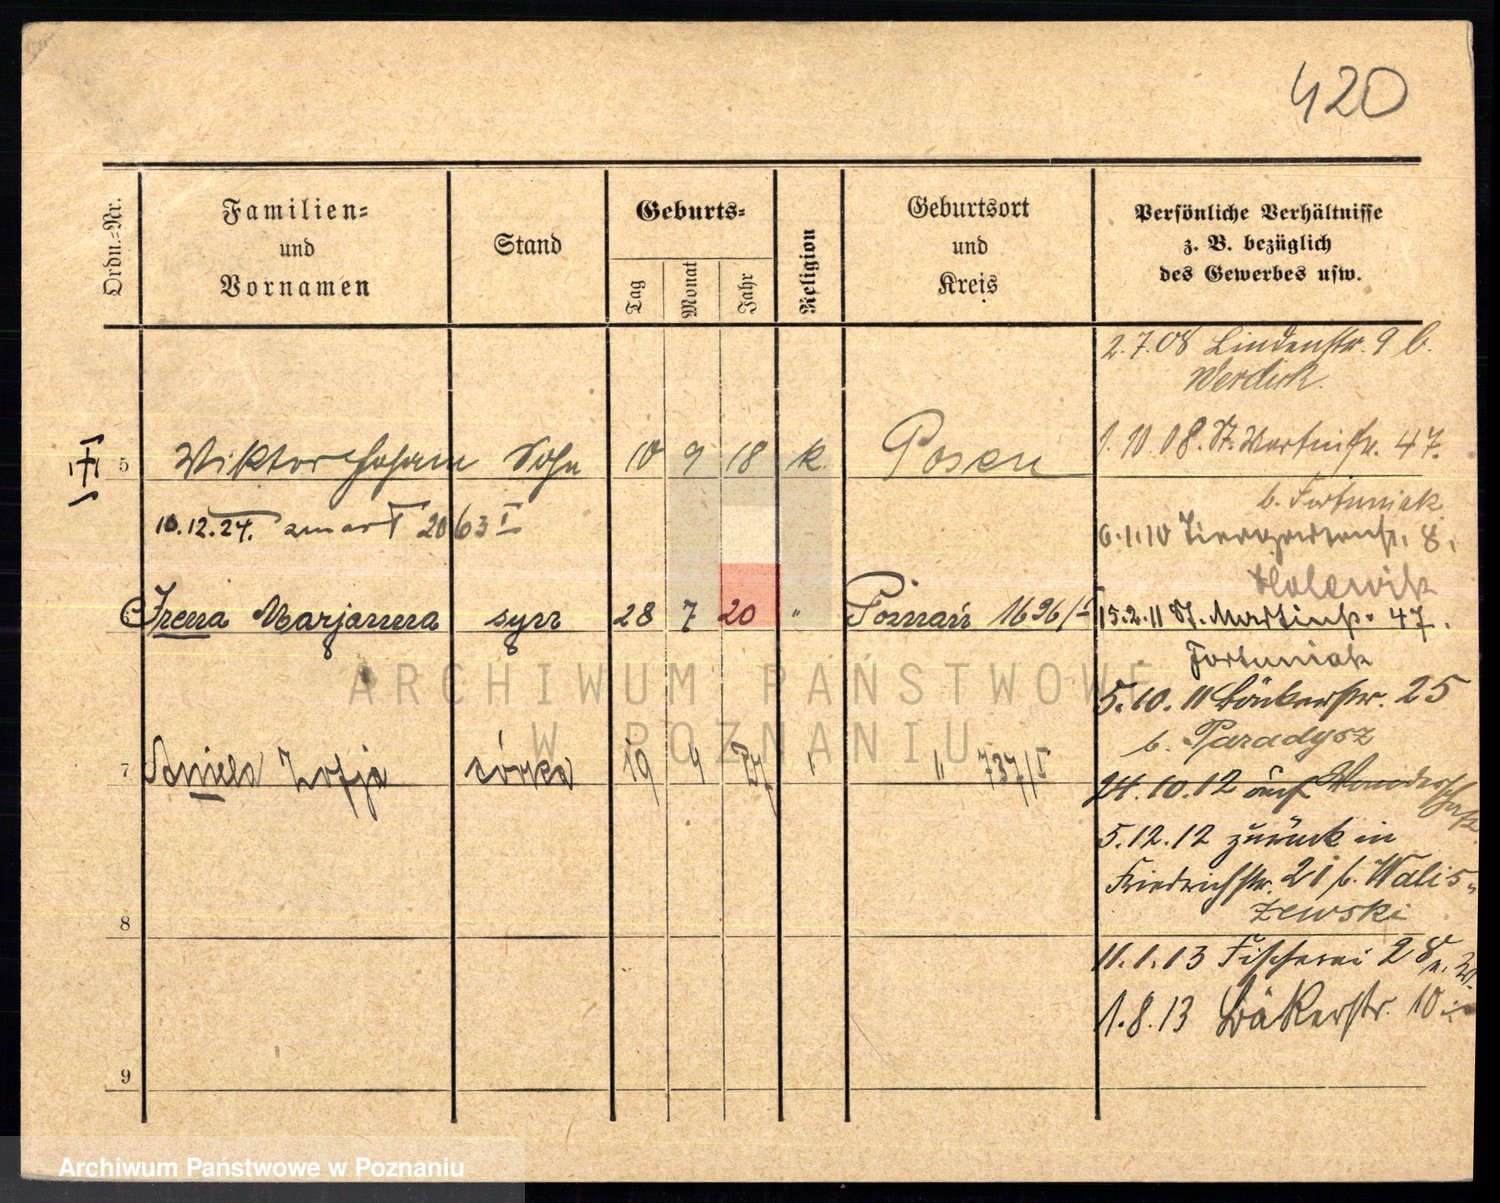 420
Ordn.-Nr.
Familien-
und
Vornamen
Stand
Geburts-
Tag
Monat
Jahr
Religion
Geburtsort
und
Kreis
Persönliche Verhältnisse
z. B. bezüglich
des Gewerbes usw.
2.7.08 Lindenstr. 9 b.
1.10.08. St. Martinstr. 47.
5 Wiktor Johann Sohn 10 9 18 k. Posen
b. Fortuniak
10.12.24. zmarł 2063 I
6.1.10 Tiergartenstr. 8.
Irena Marjanna syn 28 7 20 " Poznań 1696/I
15.2.11 St. Martinstr. 47.
Fortuniak
5.10.11 Bäckerstr. 25
b. Paradysz
7 Daniela Zofja córka 19 4 " " 737/I
24.10.12 auf Wanderschaft
5.12.12 zurück in
Friedrichstr. 21 b. Walis-
zewski
8
11.1.13 Fischerei 28
1.8.13 Bäkerstr. 10
9
ARCHIWUM PAŃSTWOWE
W POZNANIU
Archiwum Państwowe w Poznaniu